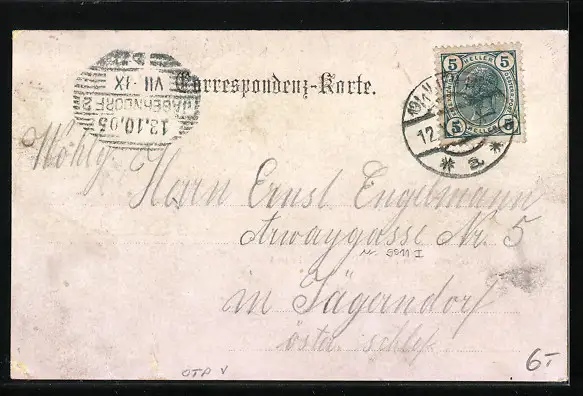 Correspondenz-Karte.
JÄGERNDORF 2
12.10.05
VII-IX
5 5
HELLER HELLER
5 5
12.
a
Wohlg.
Herrn Ernst Engelmann
Arwaygasse Nr. 5
Nr. 5911 I
in Jägerndorf
östr. schles
OTA V
6-